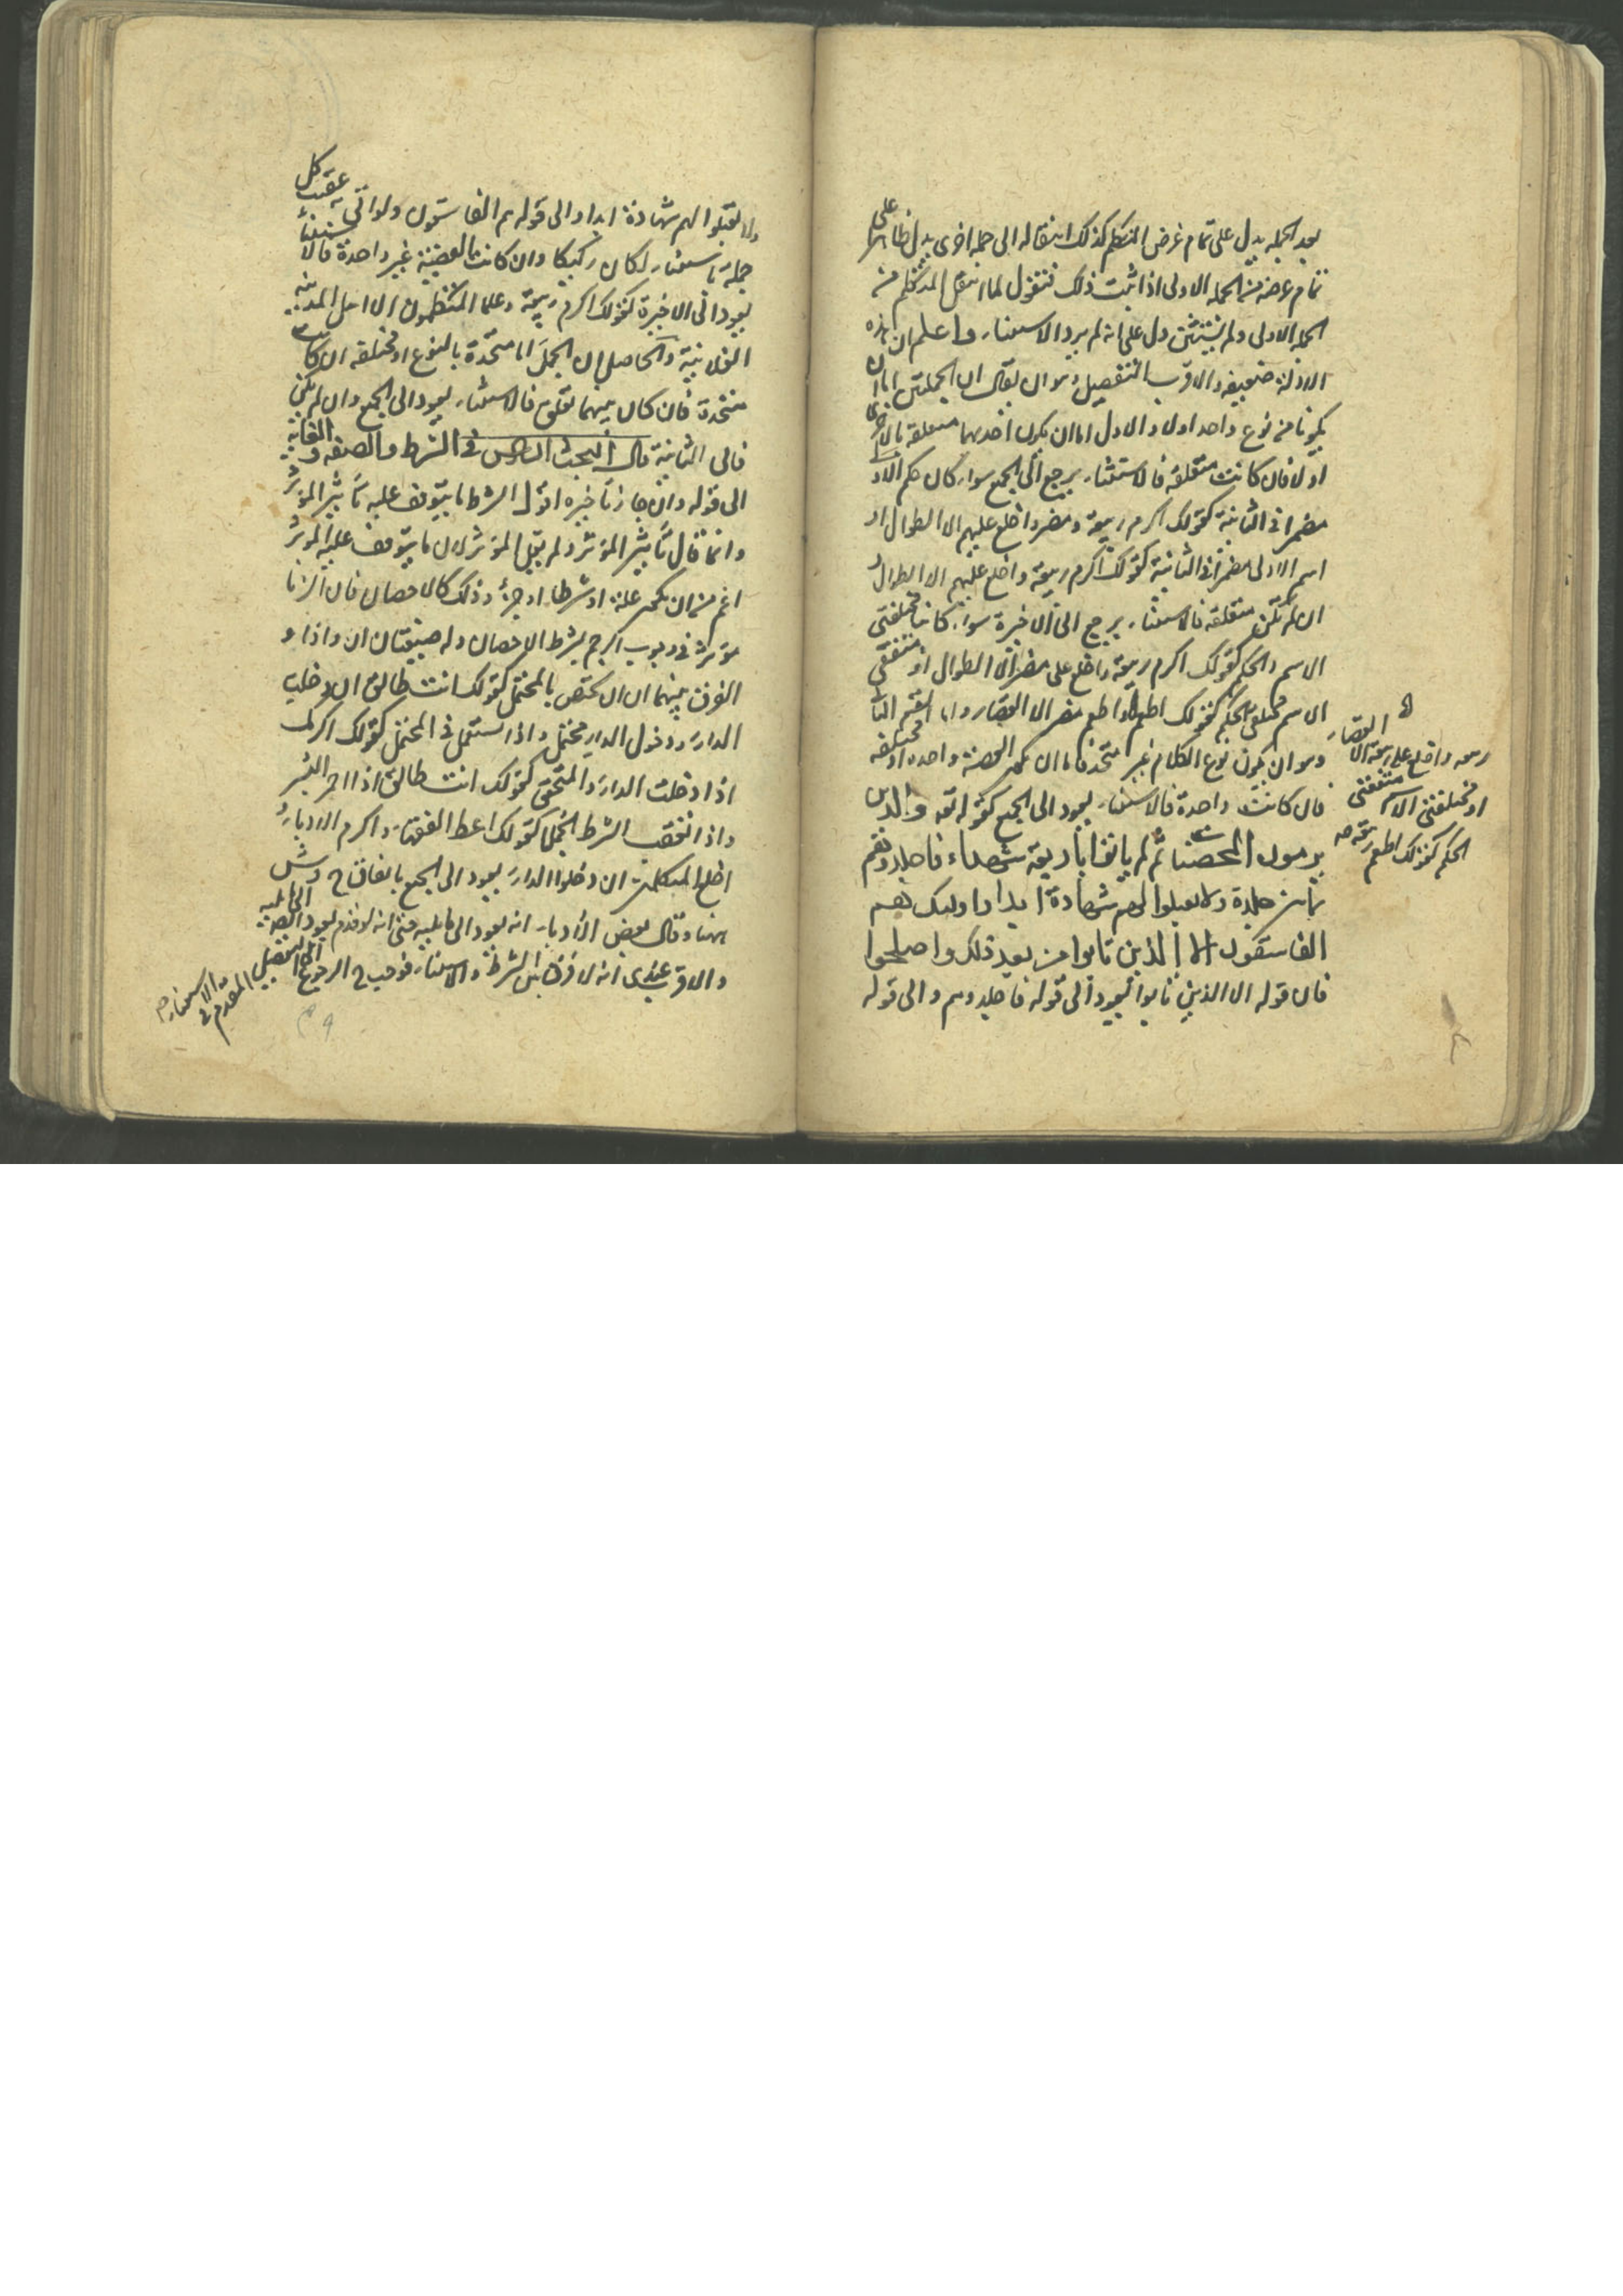 بعد الجملة يدل على تمام غرض المتكلم كذلك انتقاله الى جملة اخرى يدل ظاهرا على
تمام غرضه من الجملة الاولى اذا ثبت ذلك فنقول لما انتقل المتكلم من
الجملة الاولى ولم يستثن دل على انه لم يرد الاستثناء واعلم ان هذه
الادلة ضعيفة والاقرب التفصيل وهو ان يقال ان الجملتين اما ان
يكونا من نوع واحد اولا والاول اما ان يكون احديهما متعلقة بالاخرى
اولا فان كانت متعلقة فالاستثناء يرجع الى الجميع سواء كان حكم الاولى
مضمرا فى الثانية كقولك اكرم ربيعة ومضر واخلع عليهم الا الطوال او
اسم الاولى مضمرا فى الثانية كقولك اكرم ربيعة واخلع عليهم الا الطوال و
ان لم تكن متعلقة فالاستثناء يرجع الى الاخيرة سواء كانا مختلفتى
الاسم والحكم كقولك اكرم ربيعة واخلع على مضر الا الطوال او متفقتى
الاسم مختلفى الحكم كقولك اطعم واطعم مضر الا القصار واما القسم الثا
وهو ان يكون نوع الكلام غير متحد فاما ان تكون القصة واحدة او مختلفة
فان كانت واحدة فالاستثناء يعود الى الجميع كقوله تعه والذين
يرمون المحصنات ثم لم ياتوا باربعة شهداء فاجلدوهم
ثمانين جلدة ولا تقبلوا لهم شهادة ابدا واوليك هم
الفاسقون الا الذين تابوا من بعد ذلك واصلحوا
فان قوله الا الذين تابوا يعود الى قوله فاجلدوهم والى قوله
ربيعة واخلع على ربيعة الا القصار
او مختلفتى الاسم متفقتى
الحكم كقولك اطعم ربيعة صه
ولا تقبلوا لهم شهادة ابدا والى قوله هم الفاسقون ولو اتى عقيب كل
جملة باستثناء لكان ركيكا وان كانت القضية غير واحدة فالاستثناء
يعود الى الاخيرة كقولك اكرم ربيعة وعلما المتكلمون الا اهل المدينة
الفلانية والحاصل ان الجمل اما متحدة بالنوع او مختلفة ان كانت
متحدة فان كان بينهما تعلق فالاستثناء يعود الى الجميع وان لم يكن
فالى الثانية قال البحث السادس فى الشرط والصفة والغاية
الى قوله وان جاز تاخيره اقول الشرط ما يتوقف عليه تاثير المؤثر
وانما قال تاثير المؤثر ولم يقل المؤثر لان ما يتوقف عليه المؤثر
اعم من ان يكون علة او شرطا او جزءً وذلك كالاحصان فان الزنا
مؤثر فى وجوب الرجم بشرط الاحصان وله صيغتان ان واذا و
الفرق بينهما ان ان تختص بالمحتمل كقولك انت طالق ان دخلت
الدار ودخول الدار محتمل واذا يستعمل فى المحتمل كقولك اكرمك
اذا دخلت الدار والمتحقق كقولك انت طالق اذا احمر البسر
واذا تعقب الشرط الجمل كقولك اعط الفقهاء واكرم الادباء و
اخلع المتكلمين ان دخلوا الدار يعود الى الجميع باتفاق ح وش
ههنا وقال بعض الادباء انه يعود الى ما يليه حتى انه لو قدم يعود الى ما يليه
والاقرب عندى انه لا فرق بين الشرط والاستثناء فوجب ح الرجوع الى التفصيل
المتقدم فى
الاستثناء صه